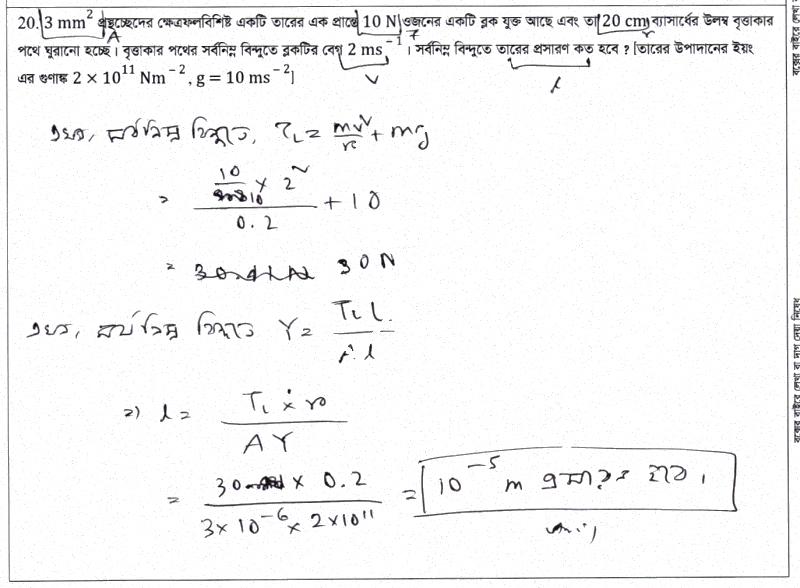 20. 3 mm² প্রস্থচ্ছেদের ক্ষেত্রফলবিশিষ্ট একটি তারের এক প্রান্তে 10 N ওজনের একটি ব্লক যুক্ত আছে এবং তা 20 cm ব্যাসার্ধের উলম্ব বৃত্তাকার
A r
পথে ঘুরানো হচ্ছে। বৃত্তাকার পথের সর্বনিম্ন বিন্দুতে ব্লকটির বেগ 2 ms⁻¹। সর্বনিম্ন বিন্দুতে তারের প্রসারণ কত হবে ? [তারের উপাদানের ইয়ং
এর গুণাঙ্ক 2 × 10¹¹ Nm⁻², g = 10 ms⁻²]
v l
এখন, সর্বনিম্ন বিন্দুতে, T_L = mv²/r + mg
= (10/10 × 2²)/0.2 + 10
= 30 N
এখন, সর্বনিম্ন বিন্দুতে Y = T_L L/A l
⇒ l = T_L × r/AY
= 30 × 0.2/3×10⁻⁶ × 2×10¹¹ = 10⁻⁵ m প্রসারণ হবে।
বক্সের বাইরে লেখা বা দাগ দেয়া নিষেধ